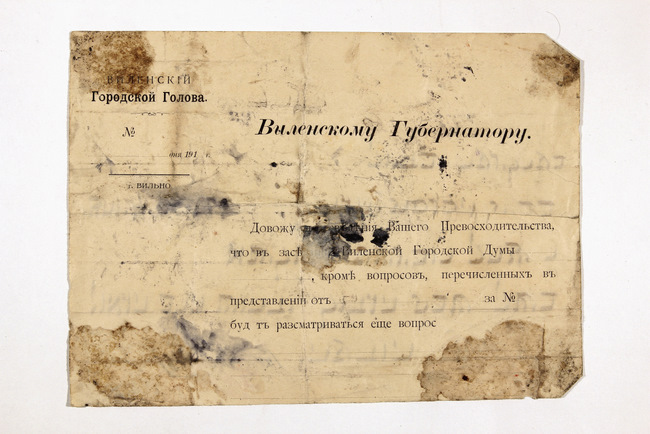 ВИЛЕНСКІЙ
Городской Голова.
№
дня 191 г.
г. ВИЛЬНО
Виленскому Губернатору.
Довожу нія Вашего Превосходительства,
что въ засѣ Виленской Городской Думы
, кромѣ вопросовъ, перечисленныхъ въ
представленіи отъ за №
буд тъ разсматриваться еще вопрос